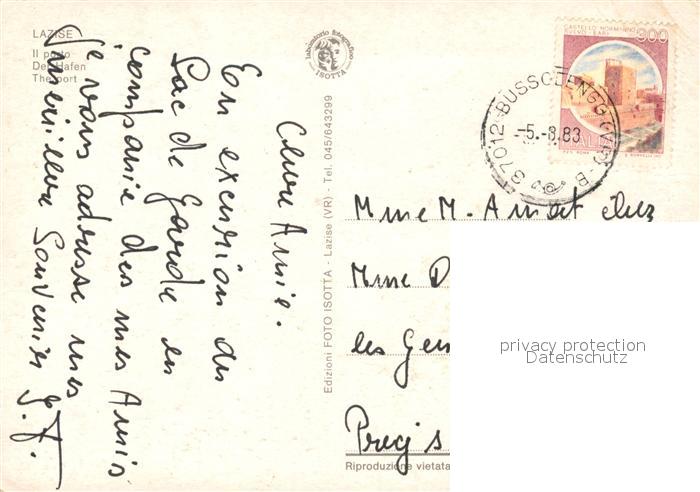 LAZISE
Il porto
Der Hafen
The port
laboratorio fotografico
ISOTTA
Chère Amie.
En excursion du
Lac de Garde en
companie des mes Amis
Je vous adresse mes
Meilleurs Souvenirs
Edizioni FOTO ISOTTA - Lazise (VR) - Tel. 045/643299
CASTELLO NORMANNO
SVEVO - BARI
300
ITALIA
37012-BUSSOLENGO (VR)-B
-5.-8.83
Mme M. Amiet chez
Mme D
les Gen
Preys
Riproduzione vietata
privacy protection
Datenschutz